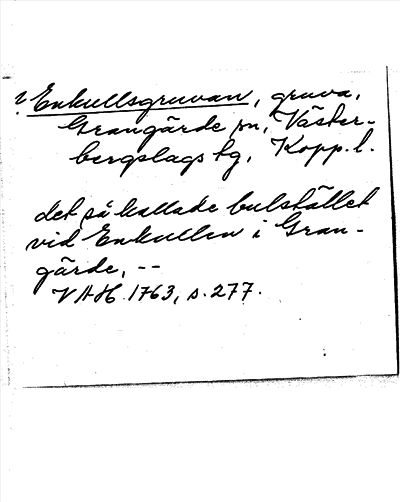 ? Enkullsgruvan, gruva,
Grangärde sn, Väster-
bergslags tg, Kopp. l.
det så kallade bulstället
vid Enkullen i Gran-
gärde, --
VAH. 1763, s. 277.